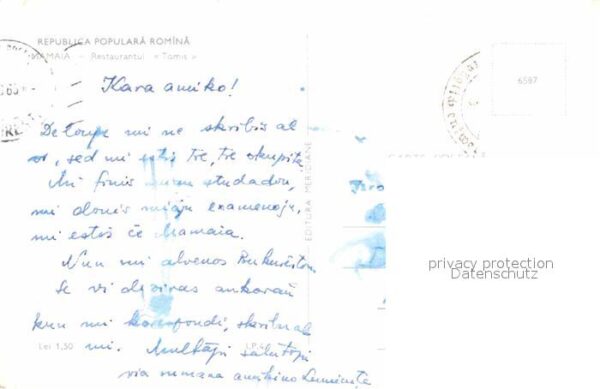 REPUBLICA POPULARĂ ROMÎNĂ
MAMAIA – Restaurantul «Tomis»
6597
Kara amiko!
De longe mi ne skribis al
vi, sed mi estis tre, tre okupita
Mi finis studadon,
mi donis miajn examenojn,
mi estis ĉe Mamaia.
Nun mi alvenos Bukureŝton
Se vi deziras ankoraŭ
kun mi korespondi, skribu al
mi. Multajn salutojn
via rumana amikino
Lei 1,30
EDITURA MERIDIANE
privacy protection
Datenschutz